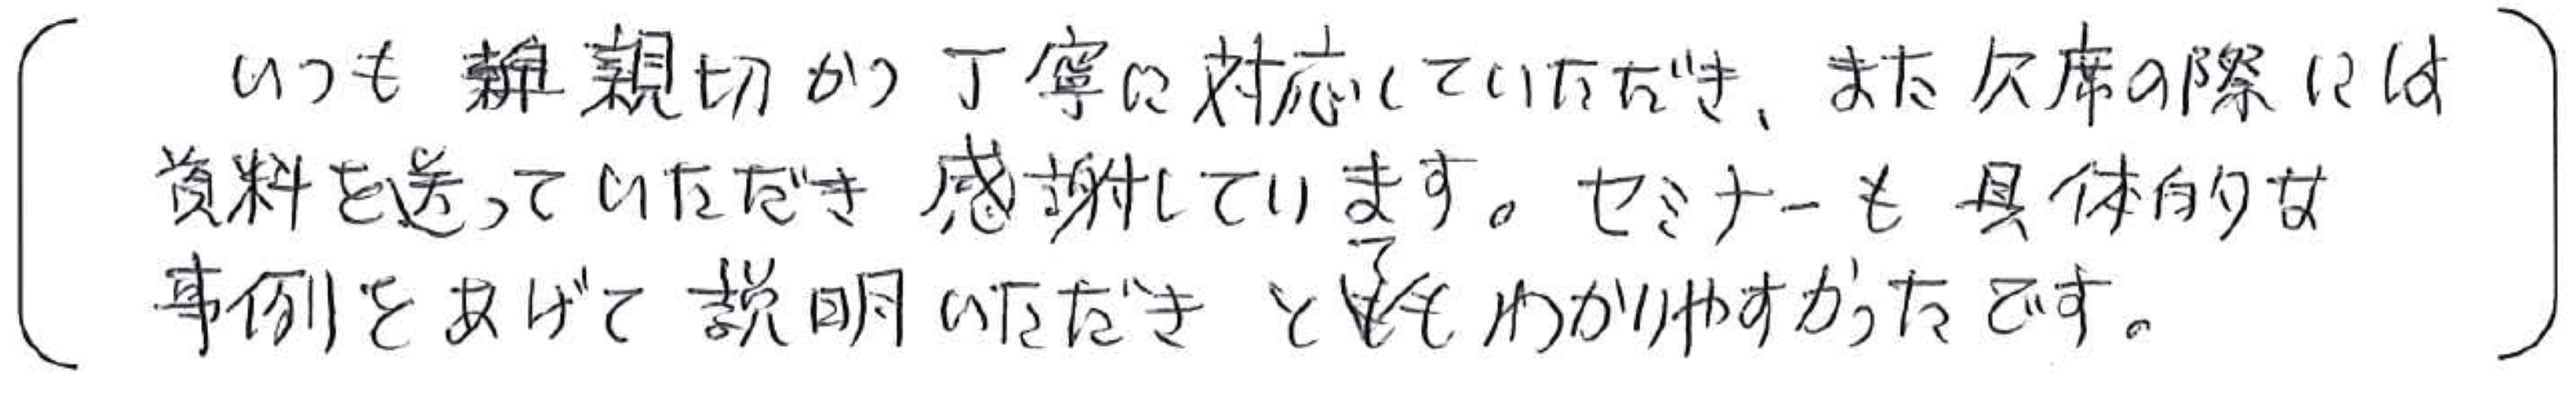 いつも親切かつ丁寧に対応していただき、また欠席の際には
資料を送っていただき感謝しています。セミナーも具体的な
事例をあげて説明いただきとてもわかりやすかったです。